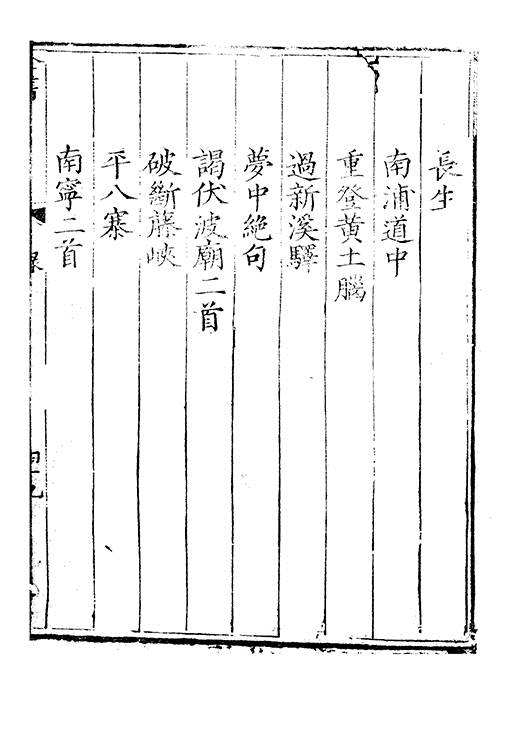 長生
南浦道中
重登黄土腦
過新溪驛
夢中絶句
謁伏波廟二首
破斷藤峽
平八寨
南寧二首